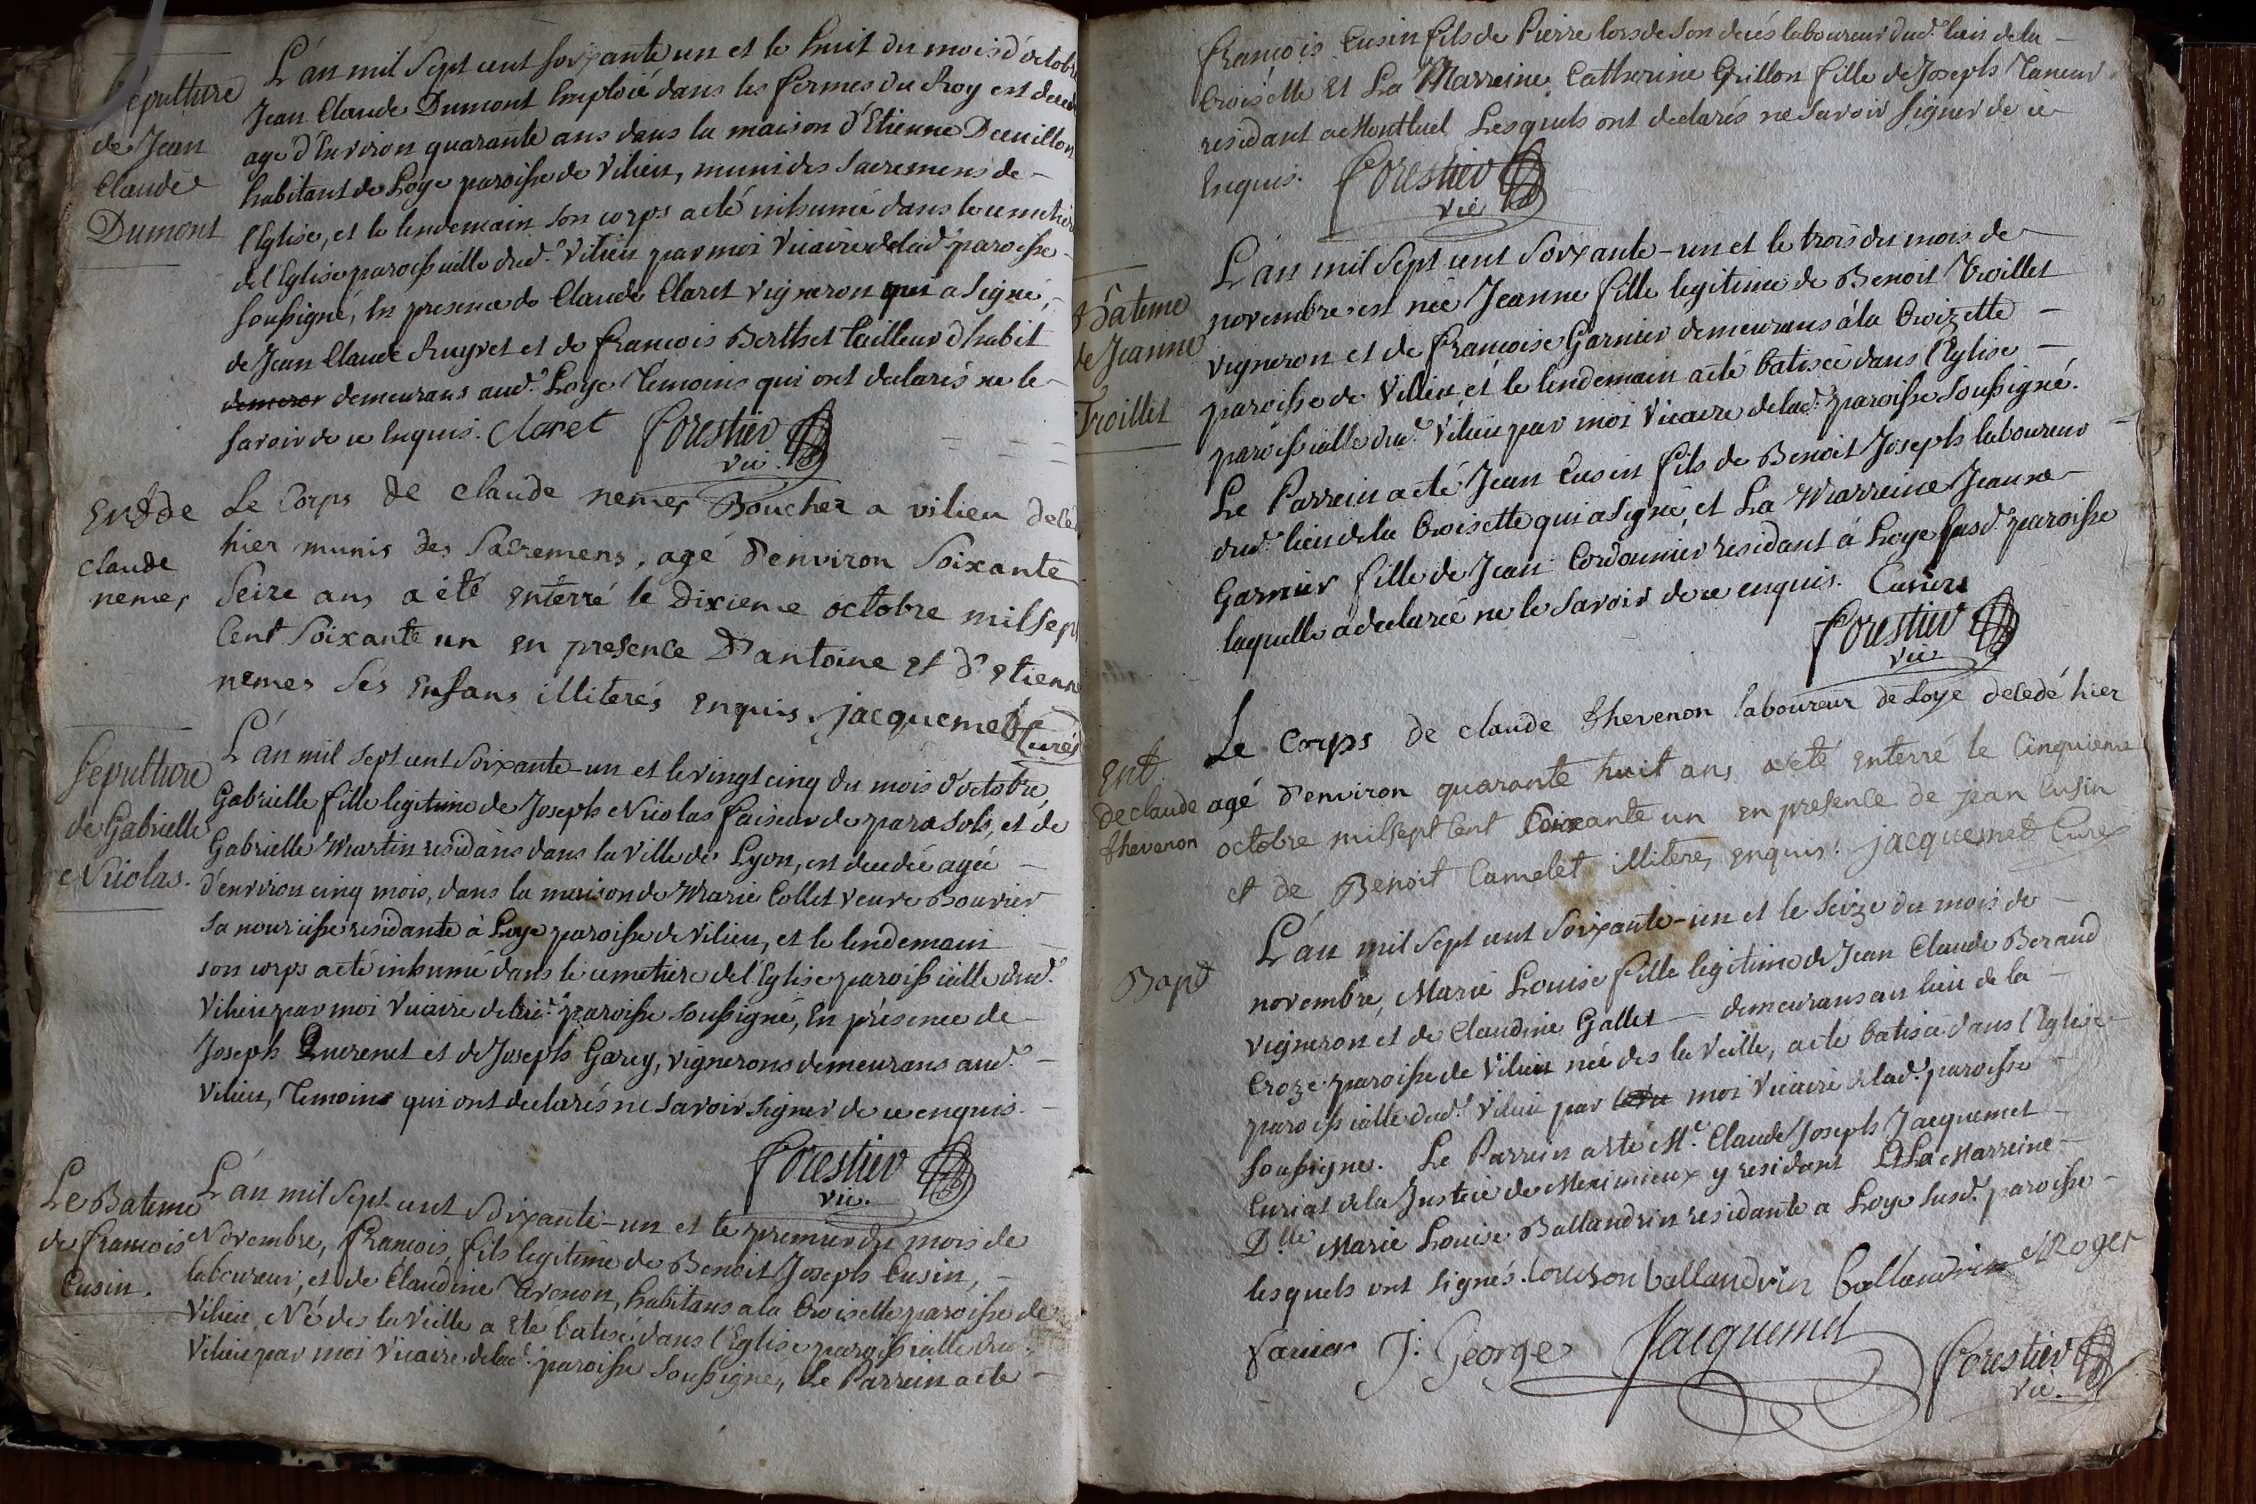 Sépulture
de Jean
Claude
Dumont
L'án mil Sept cent soixante un et le huit du mois d'octobre
Jean Claude Dumont Emploié dans les fermes du Roy est decedé
agé d'Environ quarante ans dans la maison d'Etienne Decuillon
habitant de Loye paroisse de Vilieu, muni des sacremens de -
l'Eglise, et le lendemain son corps a été inhumé dans le cimetiere
de l'Eglise paroissialle dud.t Vilieu par moi Vicaire de lad.e paroisse
soussigné, En presence de Claude Claret vigneron qui a signé,
de Jean Claude Ruyret et de francois Berthet tailleur d'habit
demeurans aud.t Loye Témoins qui ont declarés ne le -
savoir de ce Enquis. Claret Forestier
vic.
Ent de
claude
nemes
Le Corps de claude nemes Boucher a vilieu decedé
hier munis des Sacremens, agé d'environ Soixante
Seize ans a été enterré le Dixieme octobre mil sept
Cent Soixante un en presence d'antoine et d'etienne
nemes ses enfans illiterés enquis. jacquemet
Curé
Sepulture
de Gabrielle
Nicolas.
L'án mil sept cent soixante-un et le vingt cinq du mois d'octobre,
Gabrielle fille legitime de Joseph Nicolas faiseur de parasols, et de
Gabrielle Martin residans dans la ville de Lyon, est decedée agée -
d'environ cinq mois, dans la maison de Marie Collet veuve Bouvier
sa nourisse residante à Loye paroisse de Vilieu, et le lendemain -
son corps a été inhumé dans le cimetiere de l'Eglise paroissialle dud.t
Vilieu par moi Vicaire de lad.e paroisse soussigné, En présence de -
Joseph Querenet et de Joseph Garcy, vignerons demeurans aud.t -
Vilieu, Témoins qui ont declarés ne savoir signer de ce enquis. -
Forestier
vic.
Le Bateme
de francois
Cusin.
L'án mil Sept cent soixante-un et le premier du mois de
Novembre, francois, fils legitime de Benoit Joseph Cusin, -
laboureur, et de Claudine Tavenon, habitans a la Croisette paroisse de
Vilieu, Né des la veille a été batisé dans l'Eglise paroissialle dud.
Vilieu par moi Vicaire de lad.e paroisse soussigné, Le Parrein a été -
francois Cusin fils de Pierre lors de son decés laboureur dud.t lieu de la -
Croisette et La Marreine Catherine Grillon fille de Joseph Taneur
residant a Montluel Lesquels ont declarés ne savoir signer de ce
Enquis. Forestier
vic
Bâteme
de Jeanne
Troillet
L'án mil Sept cent Soixante-un et le trois du mois de -
novembre est née Jeanne fille legitime de Benoit Troillet
vigneron et de francoise Garnier demeurans á la Croizette -
paroisse de Vilieu et le lendemain a été batisée dans l'Eglise -
paroissialle dud.t Vilieu par moi Vicaire de lad.e paroisse soussigné.
Le Parrein a été Jean Cusin fils de Benoit Joseph laboureur -
dud.t lieu de la Croisette qui a signé, et La Marreine Jeanne -
Garnier fille de Jean Cordonnier residant á Loye susd.e paroisse
laquelle a declarée ne le savoir de ce enquis. Cusin
Forestier
vic
Ent
de claude
thevenon
Le Corps de claude thevenon laboureur de Loye decedé hier
agé d'environ quarante huit ans a été enterré le Cinquieme
octobre mil sept Cent Soixante un en presence de jean Cusin
et de Benoit Camelet illiterés enquis. jacquemet Curé
Bapt
L'án mil Sept cent Soixante-un et le seize du mois de -
novembre, Marie Louise fille legitime de Jean Claude Beraud
vigneron et de Claudine Gallet - demeurans au lieu de la -
Croze paroisse de Vilieu née des la veille, a été batisée dans l'Eglise -
paroissialle dud.t Vilieu par moi Vicaire de lad.e paroisse -
soussigné. Le Parrein a été M.r Claude Joseph Jacquemet -
Curial de la Justice de Meximieux y residant Et La Marreine -
D.lle Marie Louise Ballandrin residante a Loye susd.e paroisse -
lesquels ont signés. Louison ballandrin ballandrin Roger
J: George Jacquemet Forestier
vic.